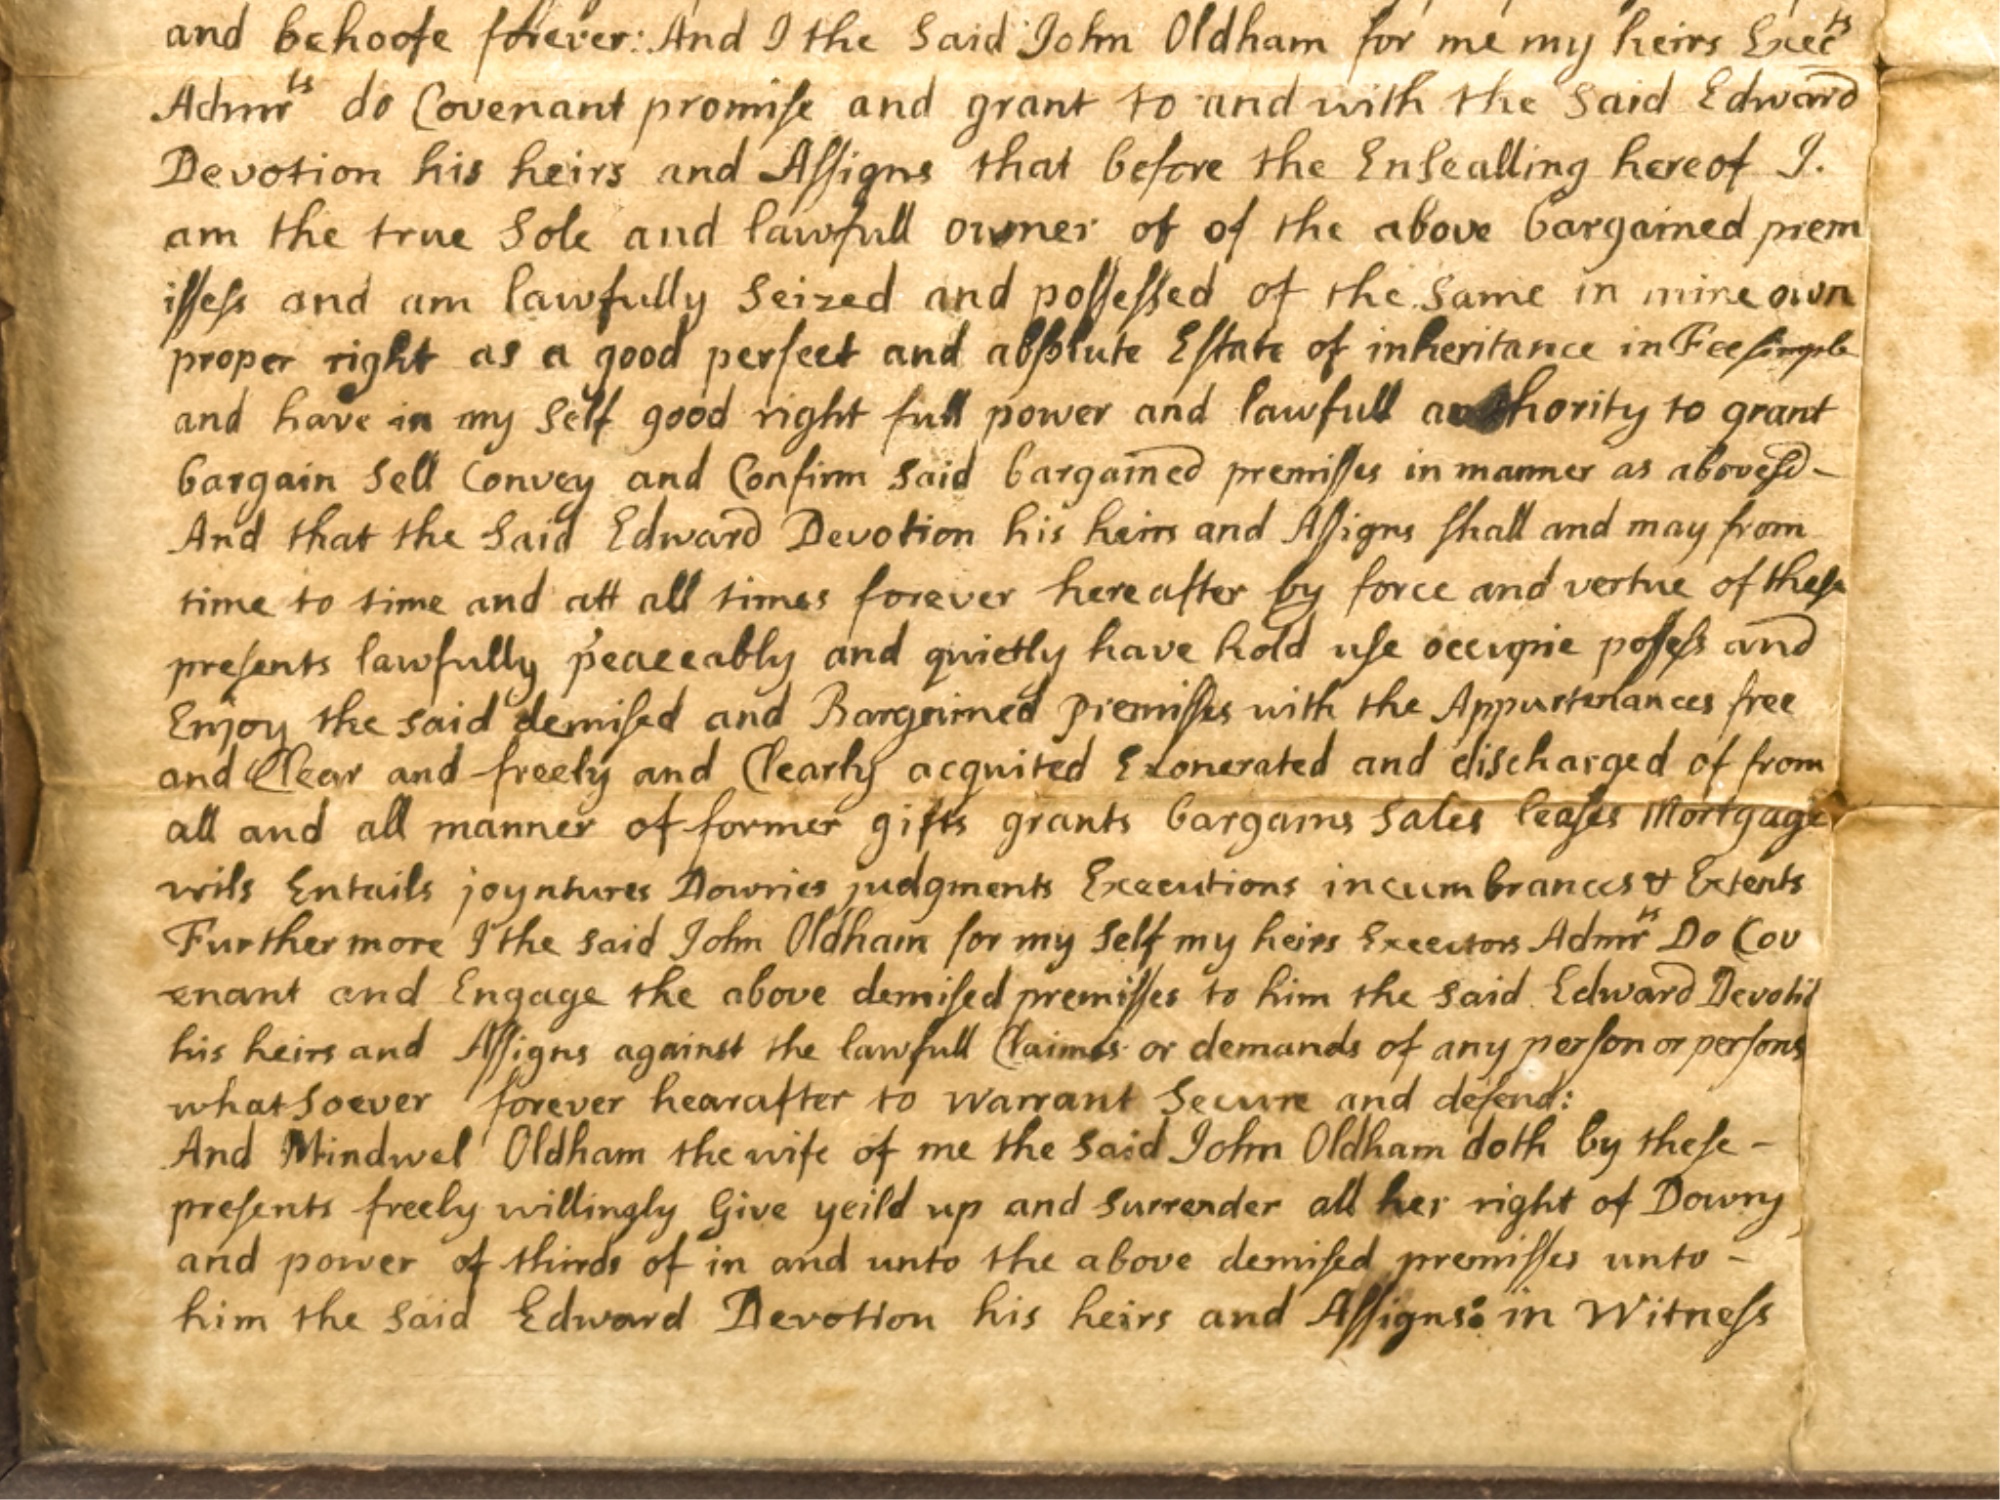 and behoofe forever: And I the Said John Oldham for me my heirs Exec^ts
Admr^ts do Covenant promiſe and grant to and with the Said Edward
Devotion his heirs and Aſſigns that before the Ensealling hereof I.
am the true Sole and lawfull owner of of the above bargained prem
iſſeſs and am lawfully Seized and poſſeſſed of the Same in mine own
proper right as a good perfect and abſolute Eſtate of inheritance in Fee ſimple
and have in my Self good right full power and lawfull authority to grant
bargain Sell Convey and Confirm Said bargained premiſſes in manner as aboveſd -
And that the Said Edward Devotion his heirs and Aſſigns ſhall and may from
time to time and att all times forever hereafter by force and vertue of theſe
preſents lawfully peaceably and quietly have hold uſe occupie poſſeſs and
Enjoy the said demiſed and Bargained premiſſes with the Appurtenances free
and Clear and freely and Clearly acquited Exonerated and discharged of from
all and all manner of former gifts grants bargains Sales leaſes Mortgage
wils Entails joyntures Dowries judgments Executions incumbrances & Extents
Furthermore I the said John Oldham for my Self my heirs Exectors Admr^ts Do Cov
enant and Engage the above demiſed premiſſes to him the Said Edward Devotiõ
his heirs and Aſſigns against the lawfull Claimes or demands of any perſon or perſons
whatSoever forever hearafter to warrant Secure and defend:
And Mindwel Oldham the wife of me the Said John Oldham doth by theſe -
preſents freely willingly Give yeild up and Surrender all her right of Dowry
and power of thirds of in and unto the above demiſed premiſſes unto -
him the Said Edward Devotion his heirs and Aſſigns: in Witneſs